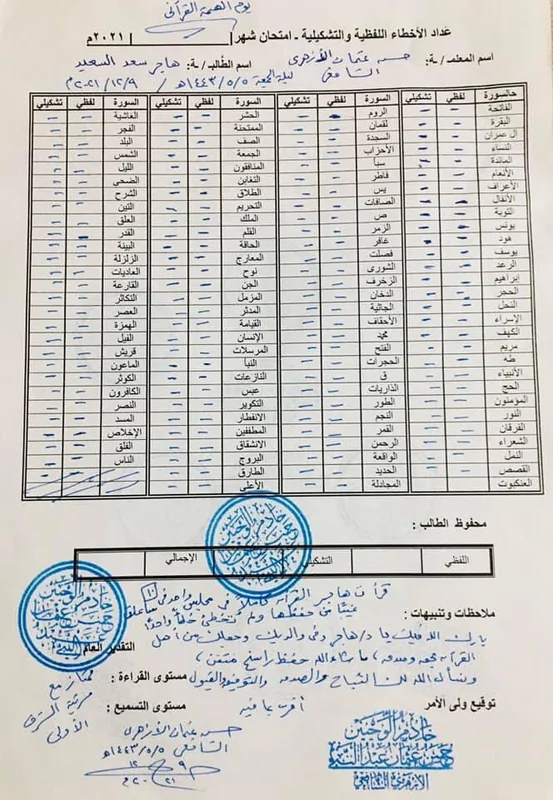 يوم الهمة القرآني
عداد الأخطاء اللفظية والتشكيلية - امتحان شهر | | ٢٠٢١م
اسم المعلمـ /ـة: حسن عثمان الأزهري الشافعي اسم الطالبـ /ـة: هاجر سعد السعيد
ليلة الجمعة ١٤٤٣/٥/٥هـ / ٢٠٢١/١٢/٩م
السورة لفظي تشكيلي السورة لفظي تشكيلي السورة لفظي تشكيلي السورة لفظي تشكيلي
الفاتحة الروم الحشر الغاشية
البقرة لقمان الممتحنة الفجر
آل عمران السجدة الصف البلد
النساء الأحزاب الجمعة الشمس
المائدة سبأ المنافقون الليل
الأنعام فاطر التغابن الضحى
الأعراف يس الطلاق الشرح
الأنفال الصافات التحريم التين
التوبة ص الملك العلق
يونس الزمر القلم القدر
هود غافر الحاقة البينة
يوسف فصلت المعارج الزلزلة
الرعد الشورى نوح العاديات
إبراهيم الزخرف الجن القارعة
الحجر الدخان المزمل التكاثر
النحل الجاثية المدثر العصر
الإسراء الأحقاف القيامة الهمزة
الكهف محمد الإنسان الفيل
مريم الفتح المرسلات قريش
طه الحجرات النبأ الماعون
الأنبياء ق النازعات الكوثر
الحج الذاريات عبس الكافرون
المؤمنون الطور التكوير النصر
النور النجم الانفطار المسد
الفرقان القمر المطففين الإخلاص
الشعراء الرحمن الانشقاق الفلق
النمل الواقعة البروج الناس
القصص الحديد الطارق
العنكبوت المجادلة الأعلى
محفوظ الطالب :
اللفظي التشكيلي الإجمالي
قرأت هاجر القرآن كاملاً في مجلس واحد في ١٠ ساعات
ملاحظات وتنبيهات : غيبًا من حفظها ولم تخطئ خطأ واحدًا
بارك الله فيك يا د/هاجر وفي والديك وجعلك من أهل
القرآن ما شاء الله حفظ راسخ متقن ،
التقدير العام
ونسأل الله لك النجاح والتوفيق والقبول
مستوى القراءة : ممتاز مع
مرتبة الشرف
الأولى
توقيع ولي الأمر أقر بما فيه مستوى التسميع :
حسن عثمان الأزهري
الشافعي ١٤٤٣/٥/٥هـ
٩ ١٢ ٢٠٢١م
خادم الوحيين
الأزهري الشافعي